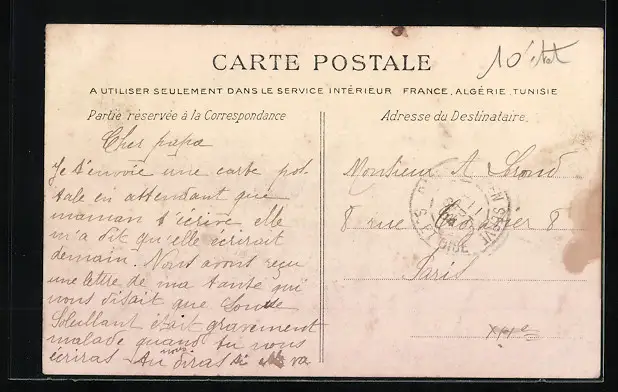 10'tet
CARTE POSTALE
A UTILISER SEULEMENT DANS LE SERVICE INTÉRIEUR FRANCE, ALGÉRIE, TUNISIE
Partie réservée à la Correspondance
Cher papa
Je t'envoie une carte pos-
tale en attendant que
maman t'écrive elle
m'a dit qu'elle écrirait
demain. Nous avons reçu
une lettre de ma tante qui
nous disait que
était gravement
malade quand tu nous
écriras tu nous diras si va
Adresse du Destinataire.
Monsieur A
8 rue 8
Paris
XVIIe